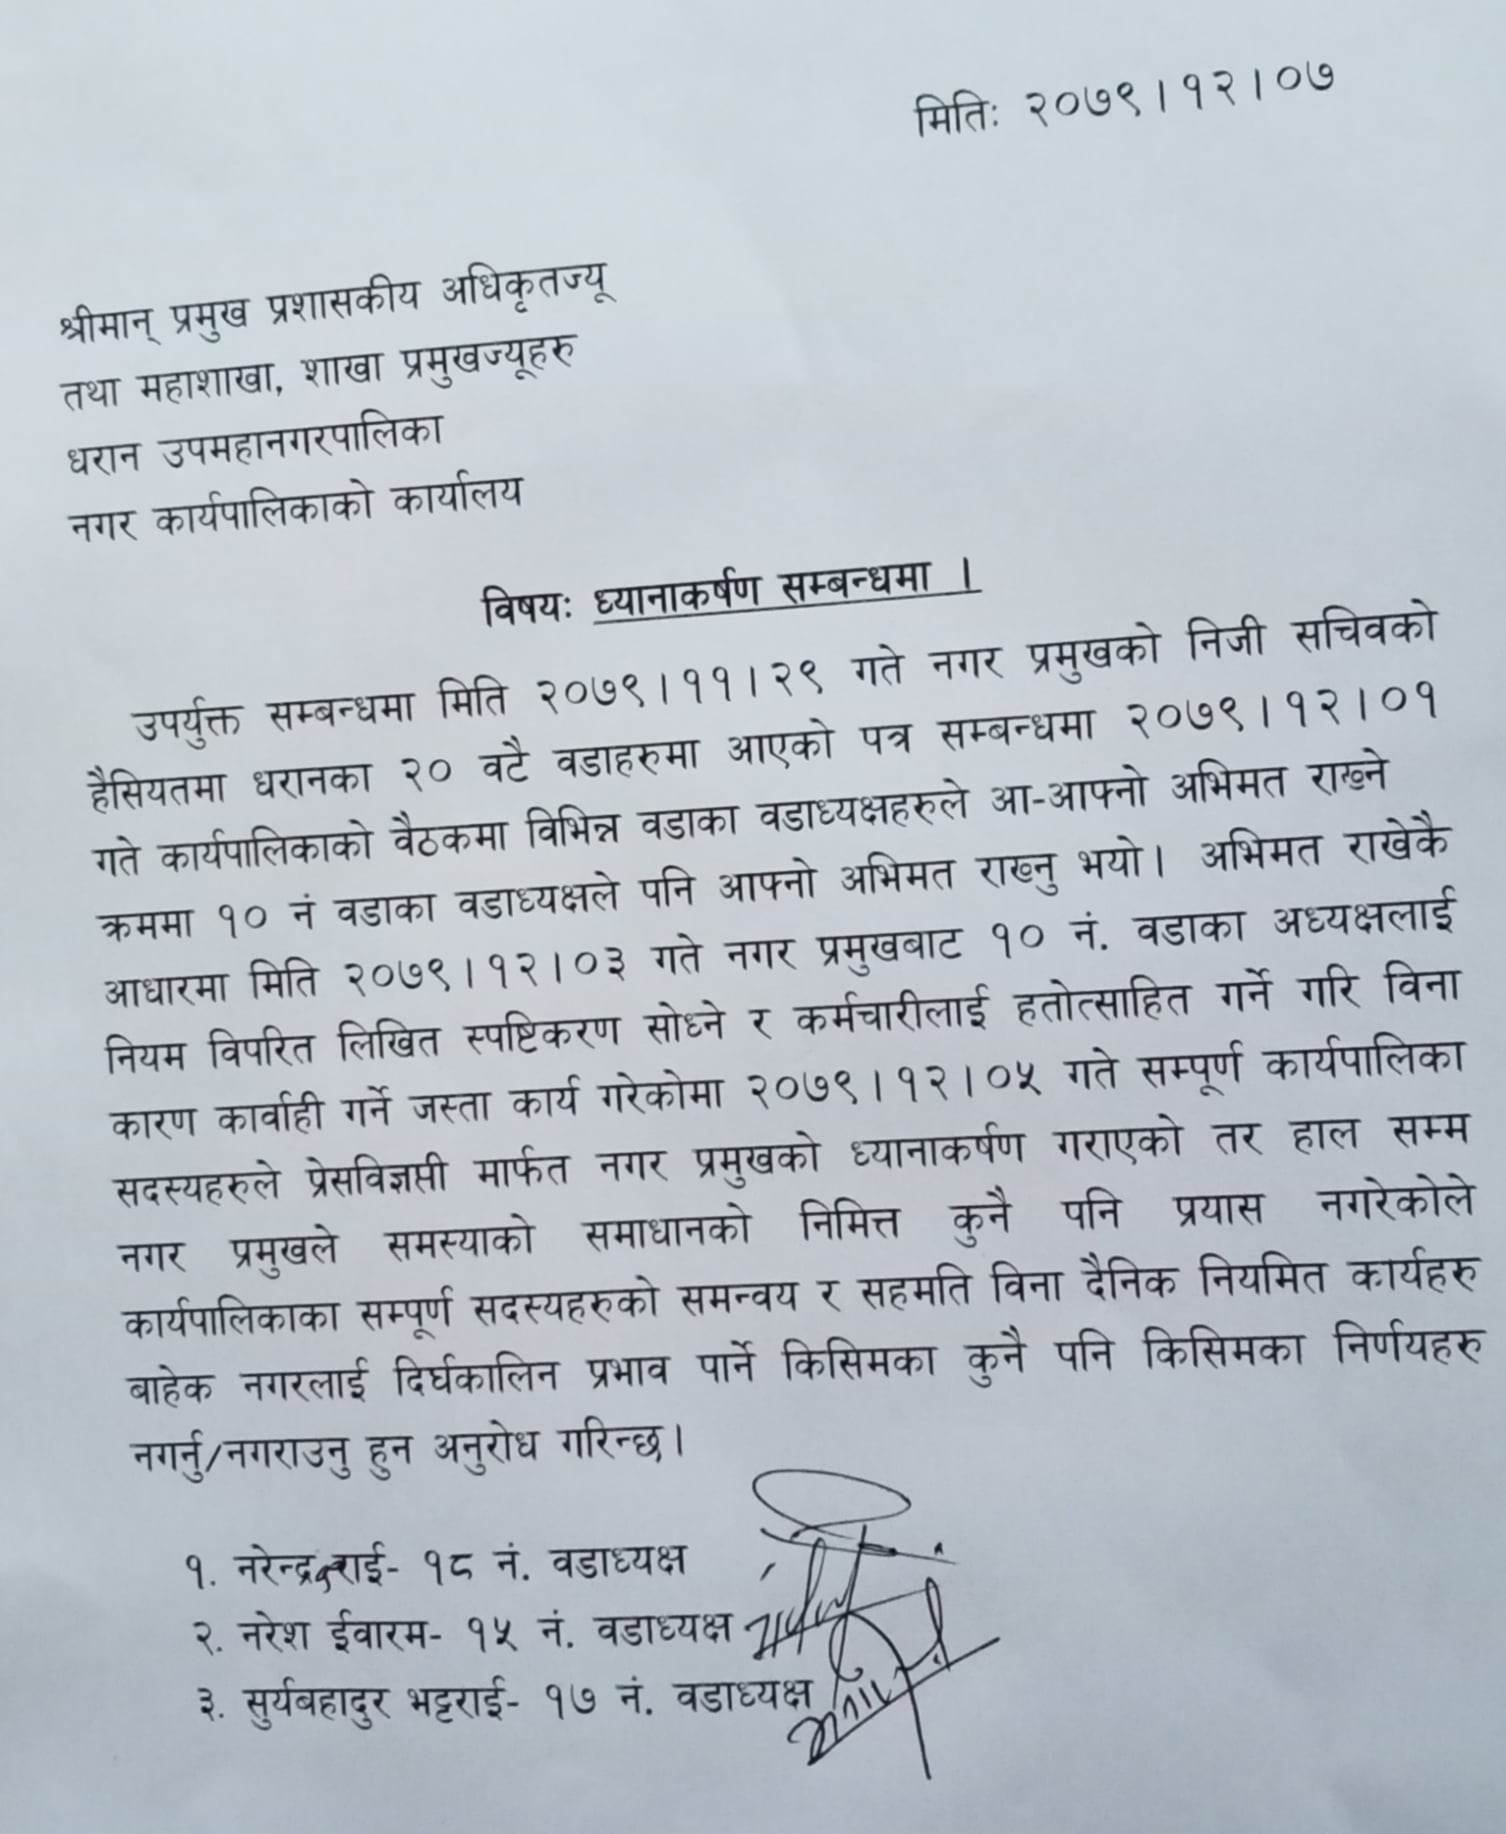 मितिः २०७९।१२।०७
श्रीमान् प्रमुख प्रशासकीय अधिकृतज्यू
तथा महाशाखा, शाखा प्रमुखज्यूहरु
धरान उपमहानगरपालिका
नगर कार्यपालिकाको कार्यालय
विषयः ध्यानाकर्षण सम्बन्धमा ।
उपर्युक्त सम्बन्धमा मिति २०७९।११।२९ गते नगर प्रमुखको निजी सचिवको
हैसियतमा धरानका २० वटै वडाहरुमा आएको पत्र सम्बन्धमा २०७९।१२।०१
गते कार्यपालिकाको वैठकमा विभिन्न वडाका वडाध्यक्षहरुले आ-आफ्नो अभिमत राख्ने
क्रममा १० नं वडाका वडाध्यक्षले पनि आफ्नो अभिमत राख्नु भयो। अभिमत राखेकै
आधारमा मिति २०७९।१२।०३ गते नगर प्रमुखबाट १० नं. वडाका अध्यक्षलाई
नियम विपरित लिखित स्पष्टिकरण सोध्ने र कर्मचारीलाई हतोत्साहित गर्ने गरि विना
कारण कार्वाही गर्ने जस्ता कार्य गरेकोमा २०७९।१२।०५ गते सम्पूर्ण कार्यपालिका
सदस्यहरुले प्रेसविज्ञप्ती मार्फत नगर प्रमुखको ध्यानाकर्षण गराएको तर हाल सम्म
नगर प्रमुखले समस्याको समाधानको निमित्त कुनै पनि प्रयास नगरेकोले
कार्यपालिकाका सम्पूर्ण सदस्यहरुको समन्वय र सहमति विना दैनिक नियमित कार्यहरु
बाहेक नगरलाई दिर्घकालिन प्रभाव पार्ने किसिमका कुनै पनि किसिमका निर्णयहरु
नगर्नु/नगराउनु हुन अनुरोध गरिन्छ।
१. नरेन्द्र राई- १८ नं. वडाध्यक्ष
२. नरेश ईवारम- १५ नं. वडाध्यक्ष
३. सुर्यबहादुर भट्टराई- १७ नं. वडाध्यक्ष